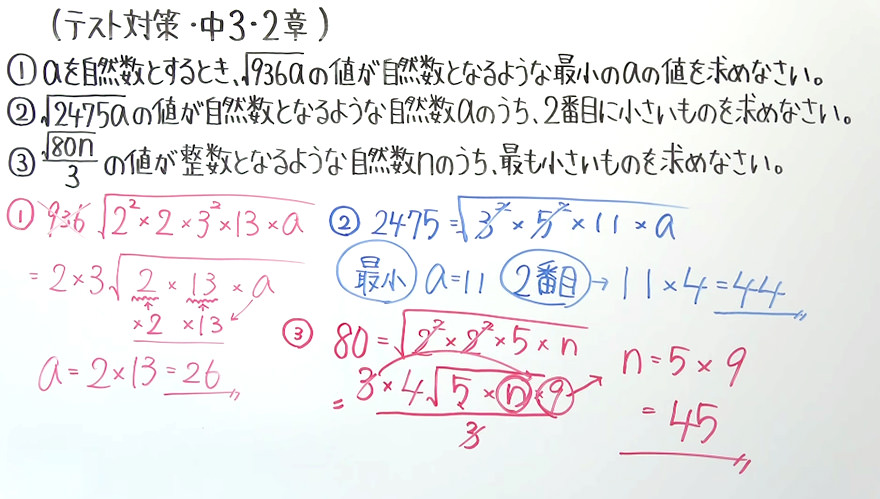 (テスト対策・中3・2章)
①aを自然数とするとき、√936aの値が自然数となるような最小のaの値を求めなさい。
②√2475aの値が自然数となるような自然数aのうち、2番目に小さいものを求めなさい。
③√80n/3の値が整数となるような自然数nのうち、最も小さいものを求めなさい。
① 936 √2²×2×3²×13×a
=2×3√2×13×a
×2 ×13
a=2×13=26
② 2475=√3²×5²×11×a
最小 a=11 2番目→11×4=44
③ 80=√2²×2²×5×n
=3×4√5×n×9
3
n=5×9
=45